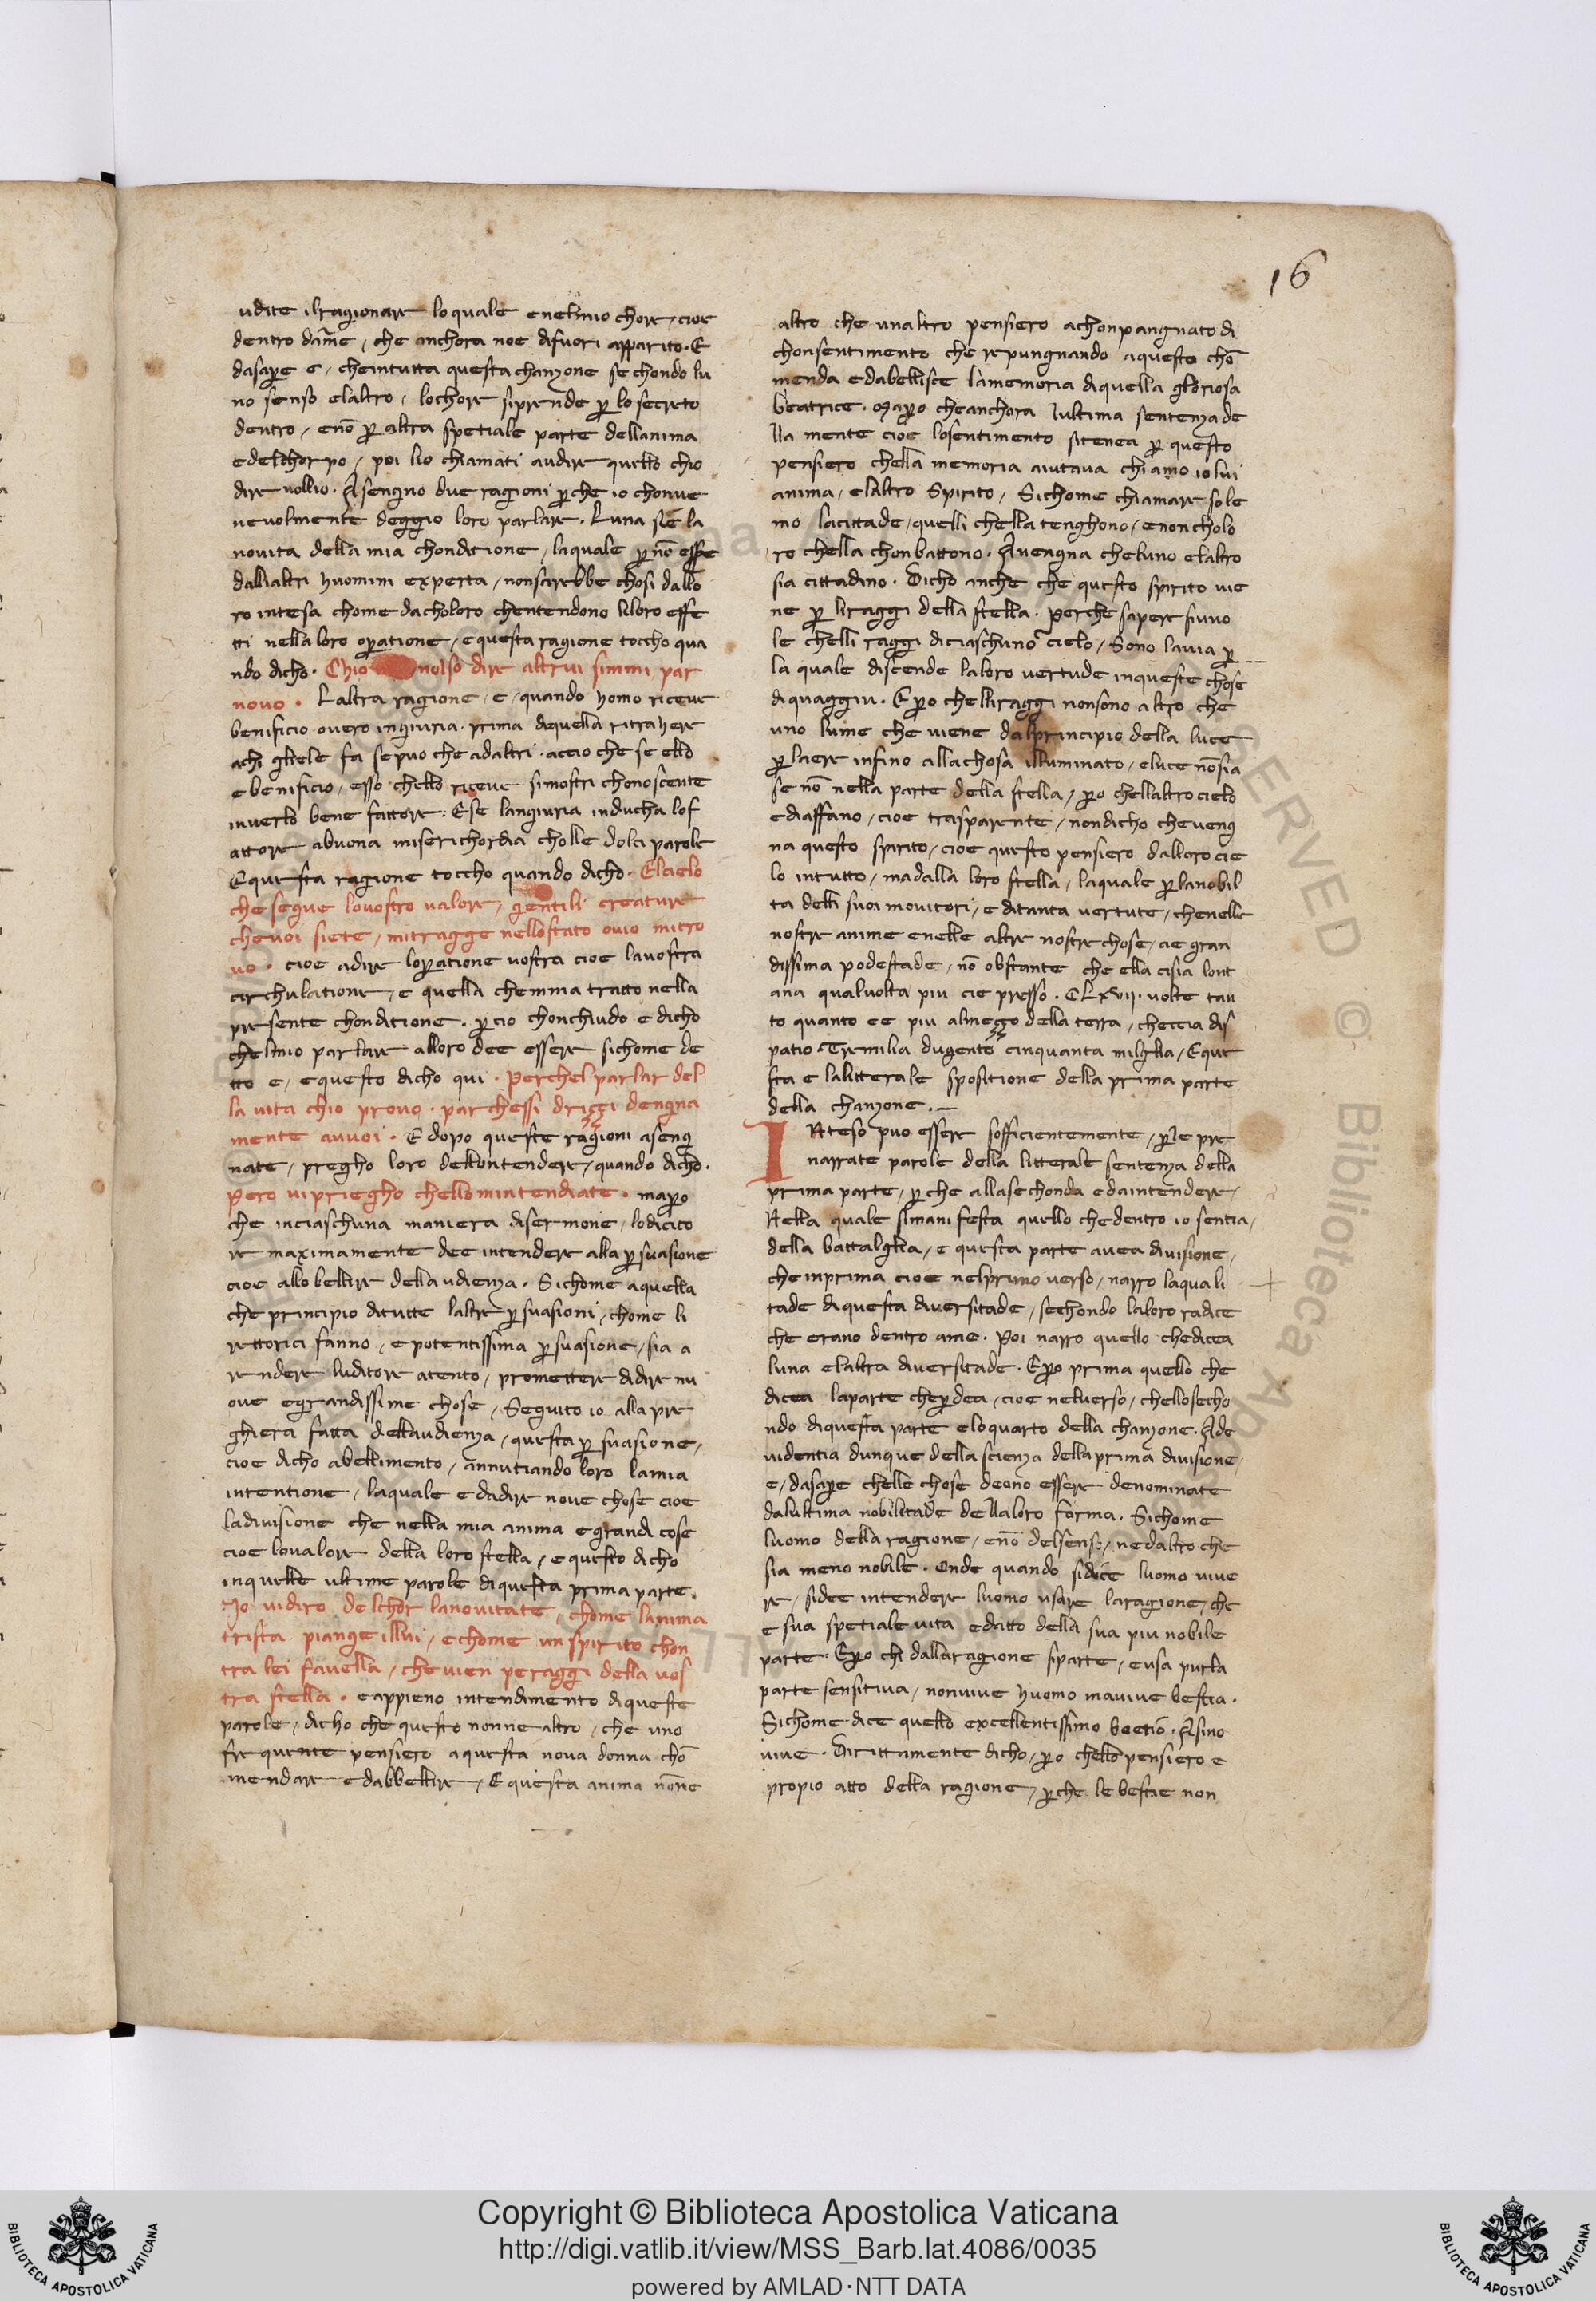 16
udite ilragionare loquale enelmio chore, cioe
dentro dame, che anchora noe difuori apparito. E
dasape e, cheintutta questa chanzone sechondo lu
no senso elaltro, lochore siprende p lo secreto
dentro, enō p altra spetiale parte dellanima
edelchorpo, poi lio chiamati audire quello chio
dire vollio. Asengno due ragioni pche io chonue
nevolmente deggio loro parlare. Luna sie la
novita della mia chonditione, laquale p nō esse
dalliatri huomini experta, nonsarebbe chosi dallo
ro intesa chome dacholoro chentendono liloro effe
tti nella loro opatione, equesta ragione toccho qua
ndo dicho. Chio nolso dire altrui simmi par
novo. Laltra ragione, e, quando homo riceve
benificio overo ingiuria. prima diquella ritrahere
achi glele fa sepuo che adaltri. accio che se ello
ebenificio, esso chello riceve simostri chonoscente
inverlo bene fattore. Ese langiuria inducha lof
attore abuona miserichordia cholle dolci parole
Equesta ragione toccho quando dicho. Elcielo
che segue lovostro valore, gentili creature
chevoi siete, mitragge nellostato ovio mitro
vo. cioe adire lopatione vostra cioe lavostra
circhulatione, e quella chemma tratto nella
presente chonditione. pcio chonchiudo e dicho
chelmio parlare alloro dee essere sichome de
tto e, equesto dicho qui. Perchel parlar del
la vita chio provo. parchessi drizzi dengna
mente avvoi. E dopo queste ragioni aseng
nate, pregho loro dellontendere, quando dicho.
Pero vipriegho chellomintendiate. mapo
che inciaschuna maniera disermone, lodicito
re maximamente dee intendere alla psuasione
cioe allo bellire della udienza. Sichome aquella
che principio ditutte laltre psuasioni, chome li
rettorici fanno, epotentissima psuasione, sia a
rendere luditore atento, promettere didire nu
ove egrandissime chose, Seguito io alla pre
ghiera fatta dellaudienza, questa psuasione,
cioe dicho abellimento, annutiando loro lamia
intentione, laquale edadire nove chose cioe
ladivisione che nella mia anima egrandi cose
cioe lovalore della loro stella, equesto dicho
inquelle ultime parole diquesta prima parte.
Io vidiro delchor lanovitate, chome lanima
trista piange illui, echome un spirito chon
tra lei favella, chevien peraggi della vos
tra stella. eappieno intendimento diqueste
parole, dicho che questo nonne altro, che uno
frequente pensiero aquesta nova donna chō
mendare edabbellire, Equesta anima nōne
altro che unaltro pensiero achonpangnato di
chonsentimento che repungnando aquesto chō
menda edabellisce lamemoria diquella gloriosa
beatrice. mapo cheanchora lultima sentenza de
lla mente cioe losentimento sitenea p questo
pensiero chella memoria aiutava chiamo iolui
anima, elaltro Spirito, Sichome chiamare sole
mo lacittade, quelli chella tenghono, enoncholo
ro chella chonbattono. Avengna cheluno elaltro
sia cittadino. Dicho anche che questo spirito vie
ne p liraggi della stella. perche sapere sivuo
le chelli raggi diciaschuno cielo, Sono lavia p
la quale discende laloro vertude inqueste chose
diquaggiu. Epo chelliraggi nonsono altro che
uno lume che viene dalprincipio della luce
p laere infino allachosa illuminato, eluce nōsia
se nō nella parte della stella, po chellaltrocielo
ediaffano, cioe trasparente, nondicho cheveng
na questo spirito, cioe questo pensiero dalloro cie
lo intutto, madalla loro stella, laquale p lanobil
ta delli suoi movitori, e ditanta vertute, chenelle
nostre anime enelle altre nostre chose, cie gran
dissima podestade, nō obstante che ella cisia lont
ana qualvolta piu cie presso. CLxvij. volte tan
to quanto ee piu almezzo della terra, checcia dis
patio Tremilia dugento cinquanta milglia, Eque
sta e lalitterale spositione della prima parte
della chanzone.
INteso puo essere sofficientemente, ple pre
narrate parole della litterale sentenza della
prima parte, pche allasechonda edaintendere,
Nella quale simanifesta quello chedentro io sentia,
della battalglia, e questa parte avea divisione,
cheinprima cioe nelprimo verso, narro laquali
tade diquesta diversitade, sechondo laloro radice
che erano dentro ame. Poi narro quello chedicea
luna elaltra diversitade. Epo prima quello che
dicea laparte chepdea, cioe nelverso, chellosecho
ndo diquesta parte eloquarto della chanzone. Ade
videntia dunque della scienza dellaprima divisione,
e, dasape chelle chose deono essere denominate
dalultima nobilitade dellaloro forma. Sichome
luomo della ragione, enō delsenso, nedaltro che
sia meno nobile. Onde quando sidice luomo vive
re, sidee intendere luomo usare laragione, che
e sua spetiale vita edatto della sua piu nobile
parte. Epo chi dallaragione siparte, eusa purla
parte sensitiva, nonvive huomo mavive bestia.
Sichome dice quello excellentissimo boetio. Asino
vive. Dirittamente dicho, po chello pensiero e
propio atto della ragione, pche le bestie non
Copyright © Biblioteca Apostolica Vaticana
http://digi.vatlib.it/view/MSS_Barb.lat.4086/0035
powered by AMLAD·NTT DATA
BIBLIOTECA APOSTOLICA VATICANA
BIBLIOTECA APOSTOLICA VATICANA